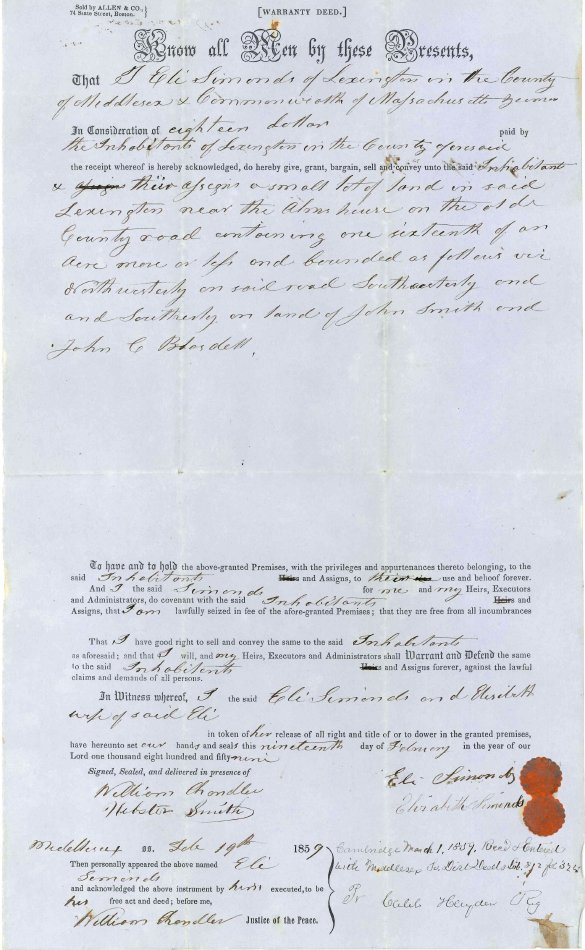 Sold by ALLEN & CO.,
74 State Street, Boston.
[WARRANTY DEED.]
Know all Men by these Presents,
That I Eli Simonds of Lexington in the County
of Middlesex & Commonwealth of Massachusetts
In Consideration of eighteen dollars paid by
the Inhabitants of Lexington in the County
the receipt whereof is hereby acknowledged, do hereby give, grant, bargain, sell and convey unto the said Inhabitants
& their assigns a small lot of land in said
Lexington near the Almshouse on the olde
County road containing one sixteenth of an
Acre more or less and bounded as follows viz
Northwesterly on said road Southwesterly and
and Southerly on land of John Smith and
John C Blasdell.
To have and to hold the above-granted Premises, with the privileges and appurtenances thereto belonging, to the
said Inhabitants Heirs and Assigns, to their use and behoof forever.
And I the said Simonds for me and my Heirs, Executors
and Administrators, do covenant with the said Inhabitants Heirs and
Assigns, that I am lawfully seized in fee of the afore-granted Premises; that they are free from all incumbrances
That I have good right to sell and convey the same to the said Inhabitants
as aforesaid; and that I will, and my Heirs, Executors and Administrators shall Warrant and Defend the same
to the said Inhabitants Heirs and Assigns forever, against the lawful
claims and demands of all persons.
In Witness whereof, I the said Eli Simonds and Elizabeth
wife of said Eli
in token of her release of all right and title of or to dower in the granted premises,
have hereunto set our hands and seals this nineteenth day of February in the year of our
Lord one thousand eight hundred and fifty-nine
Signed, Sealed, and delivered in presence of
William Chandler
Webster Smith
Eli Simonds
Elizabeth Simonds
Middlesex ss. Feb 19th 1859
Then personally appeared the above named Eli
Simonds
and acknowledged the above instrument by him executed, to be
his free act and deed; before me,
William Chandler Justice of the Peace.
Cambridge March 1, 1859. Recd & Entered
with Middlesex So. Dist. Deeds Lib. 812
Pr Caleb Hayden Reg